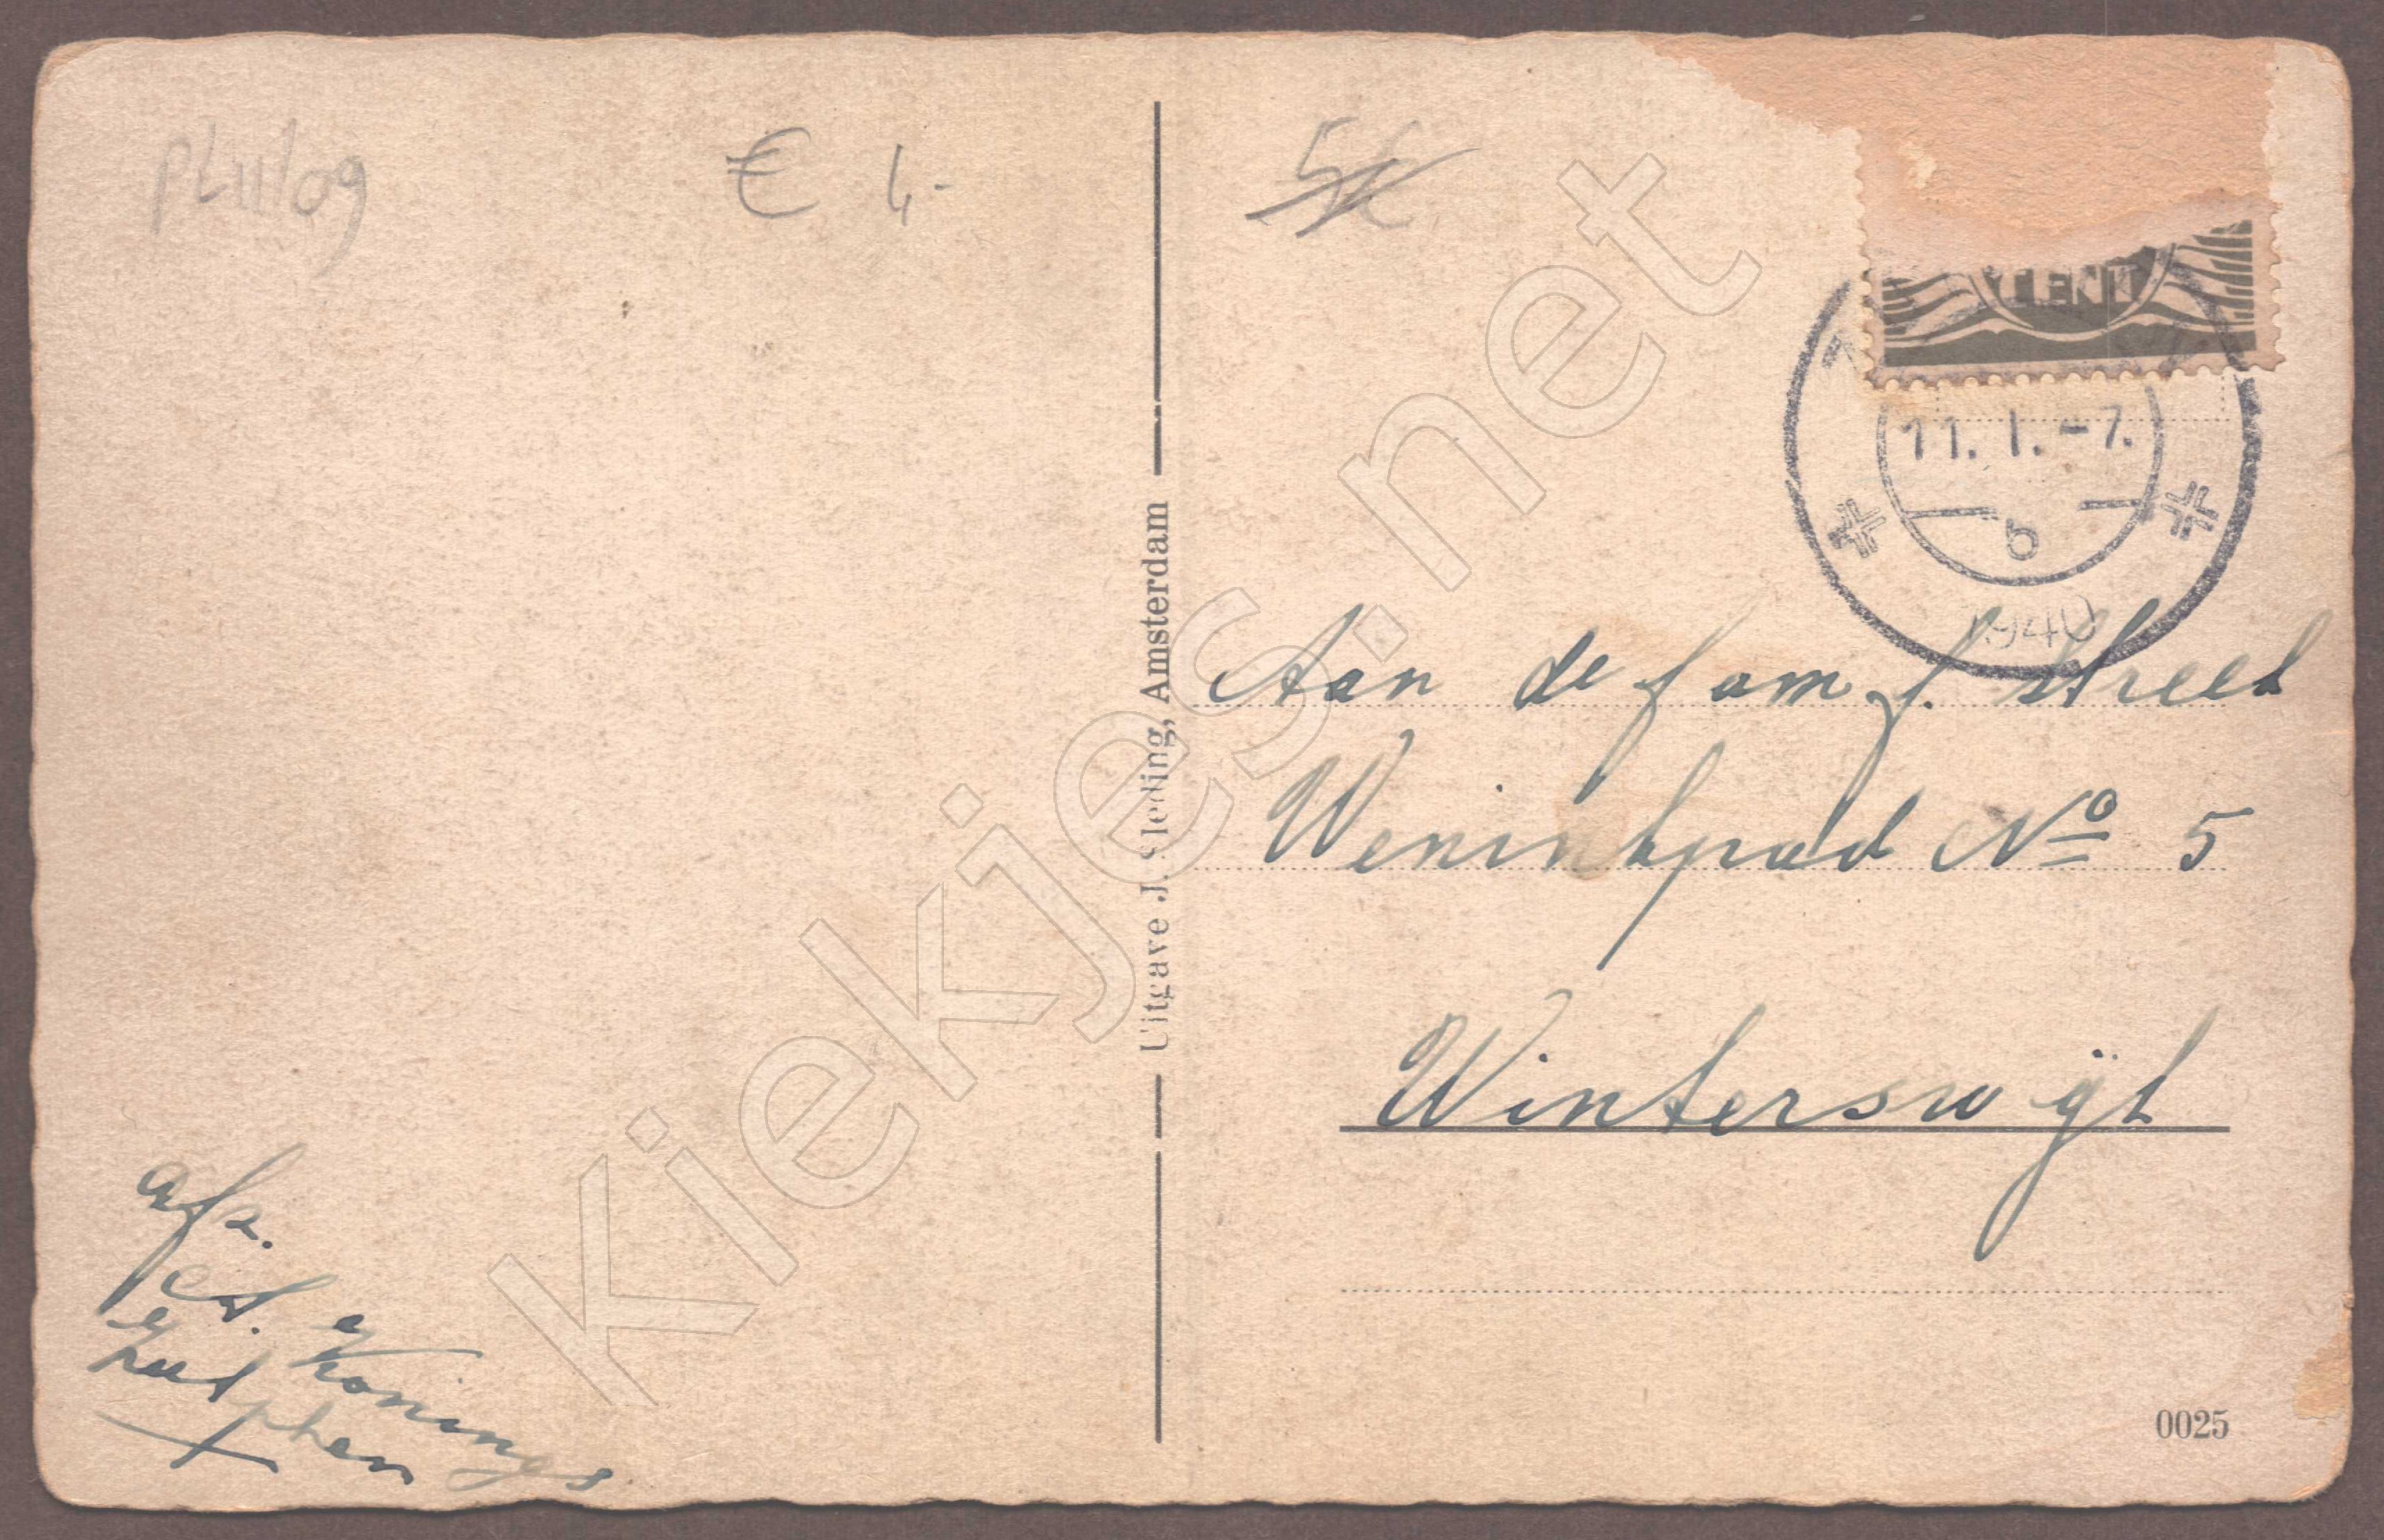 € 4,-
5€
CENT
11. 1. -7.
b
1940
Aan de fam J. Streek
Weninkpad Nº 5
Winterswijk
Uitgave J. Sleding, Amsterdam
afz.
Konings
Zutphen
0025
Kiekjes.net